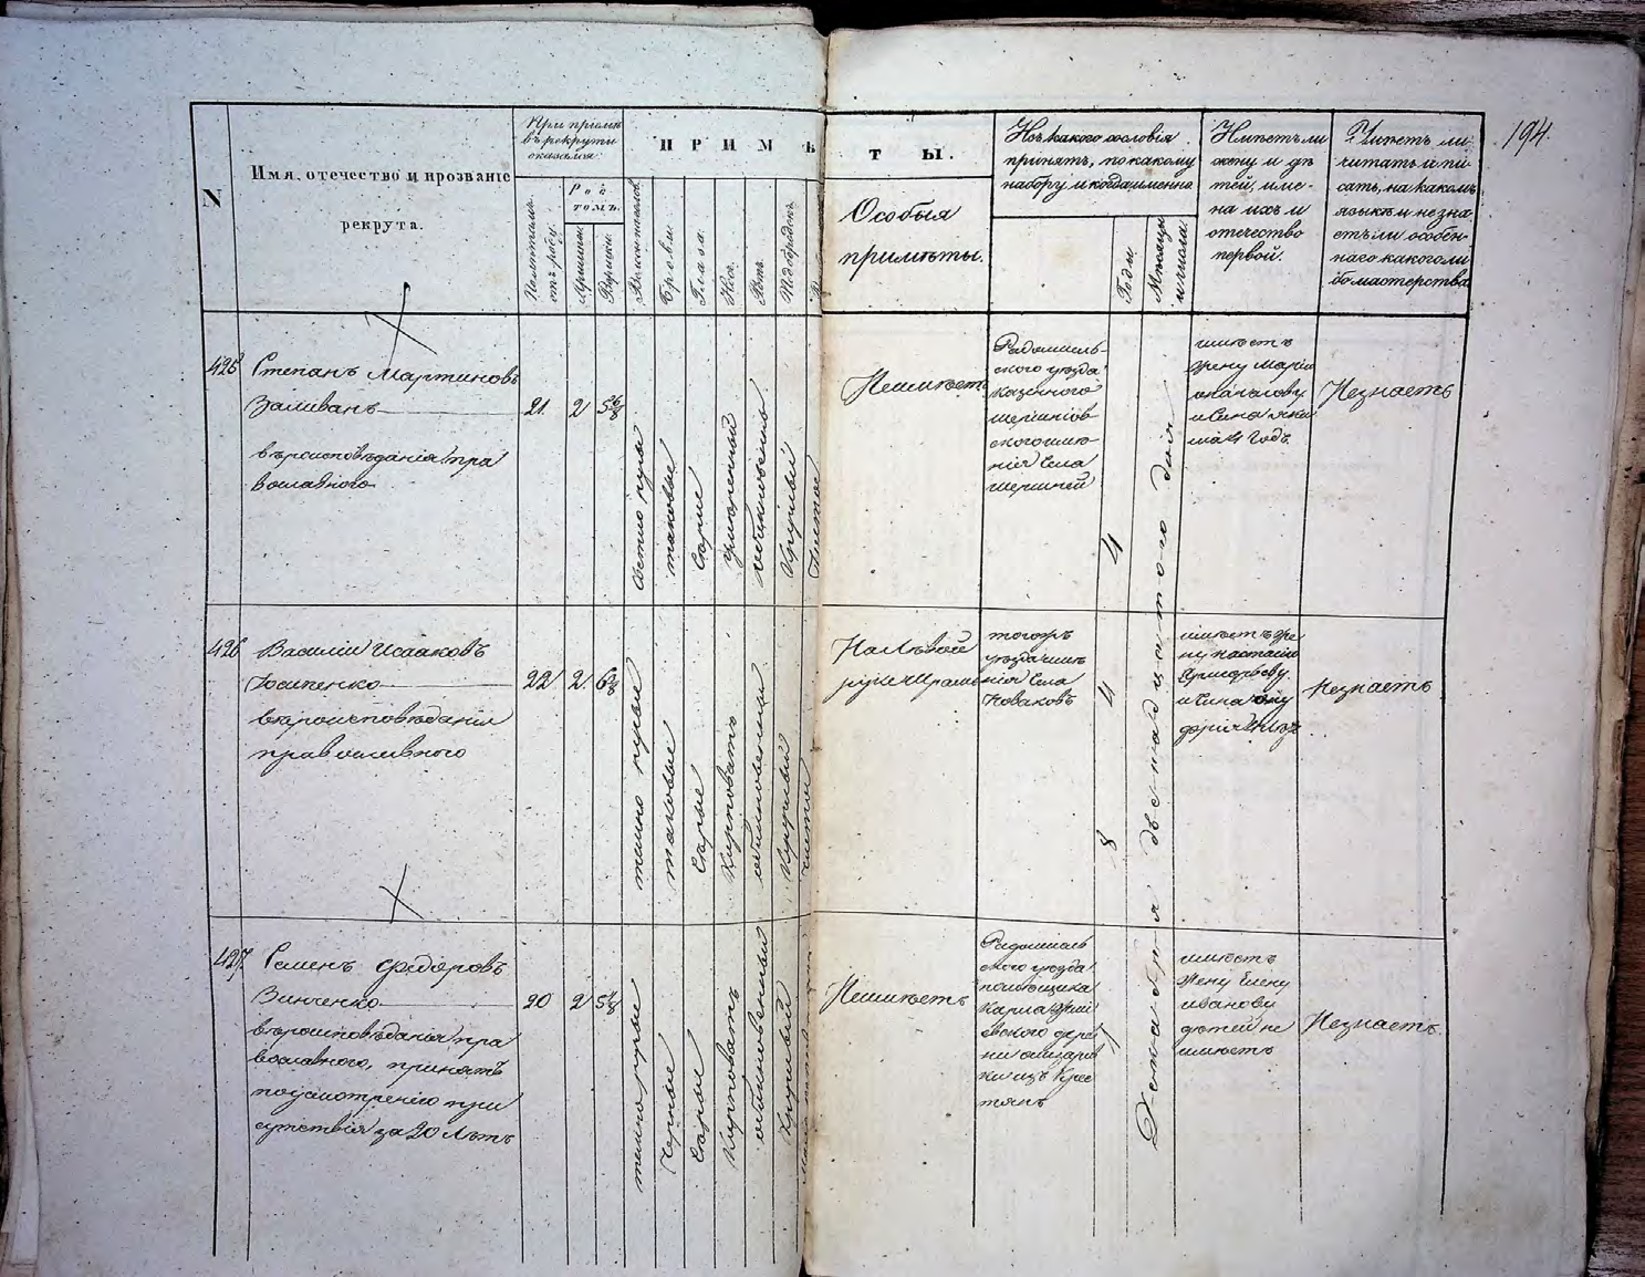 194.
N
Имя, отечество и прозваніе
рекрута.
При пріемѣ
въ рекруты
оказался:
Полѣтамъ
отъ роду.
Рос
томъ.
Аршины.
Вершки.
ПРИМѢТЫ.
Брови.
Глаза.
Носъ.
Ротъ.
Подбородокъ
Особыя
примѣты.
Изъ какого сословія
принятъ, по какому
набору и когда именно
Годы.
Мѣсяцы
и числа.
Имѣетъ ли
жену и дѣ
тей, име-
на ихъ и
отечество
первой.
Умѣетъ ли
читать и пи
сать, на какомъ
языкѣ и не зна
етъ ли особен-
наго какого ли
бо мастерства
425
Степанъ Мартиновъ
Заливанъ
вѣроисповѣданія пра
вославного
21.
2
5 6/8
Светло русы
таковые
Серые
умѣренный
обыкновенно
Круглый
Чистое
Неимѣетъ
Радомысль-
ского уезда
казенного
шершнѣв
ского имѣ-
нія Села
шершней
имѣетъ
жену Марію
и Сина
Незнаетъ
426
Василій Исааковъ
Іосипенко
вѣроисповѣданія
православного
22
2
6
темно русые
таковые
Серые
Курноватъ
обыкновенный
Круглый
чистое
На Лѣвой
руке Шрамъ
тогожъ
уезда имѣ
нія Села
Новаковъ
имѣетъ же
ну настасію
Григорьеву
и Сина
Незнаетъ
427
Семенъ Федоровъ
Винченко
вѣроисповѣданія пра
вославного, принятъ
поусмотренію при
сутствія за 20 Лѣтъ
20
2
5
темно русые
Черные
Серые
Курноватъ
обыкновенный
Круглый
Неимѣетъ
Радомысль
ского уезда
помѣщика
Карла
евского дере
ни
ки изъ Крес
тянъ
имѣетъ
жену Елену
иванову
дѣтей не
имѣетъ
Незнаетъ.
4
4
8
1
Декабря двенадцатого дня